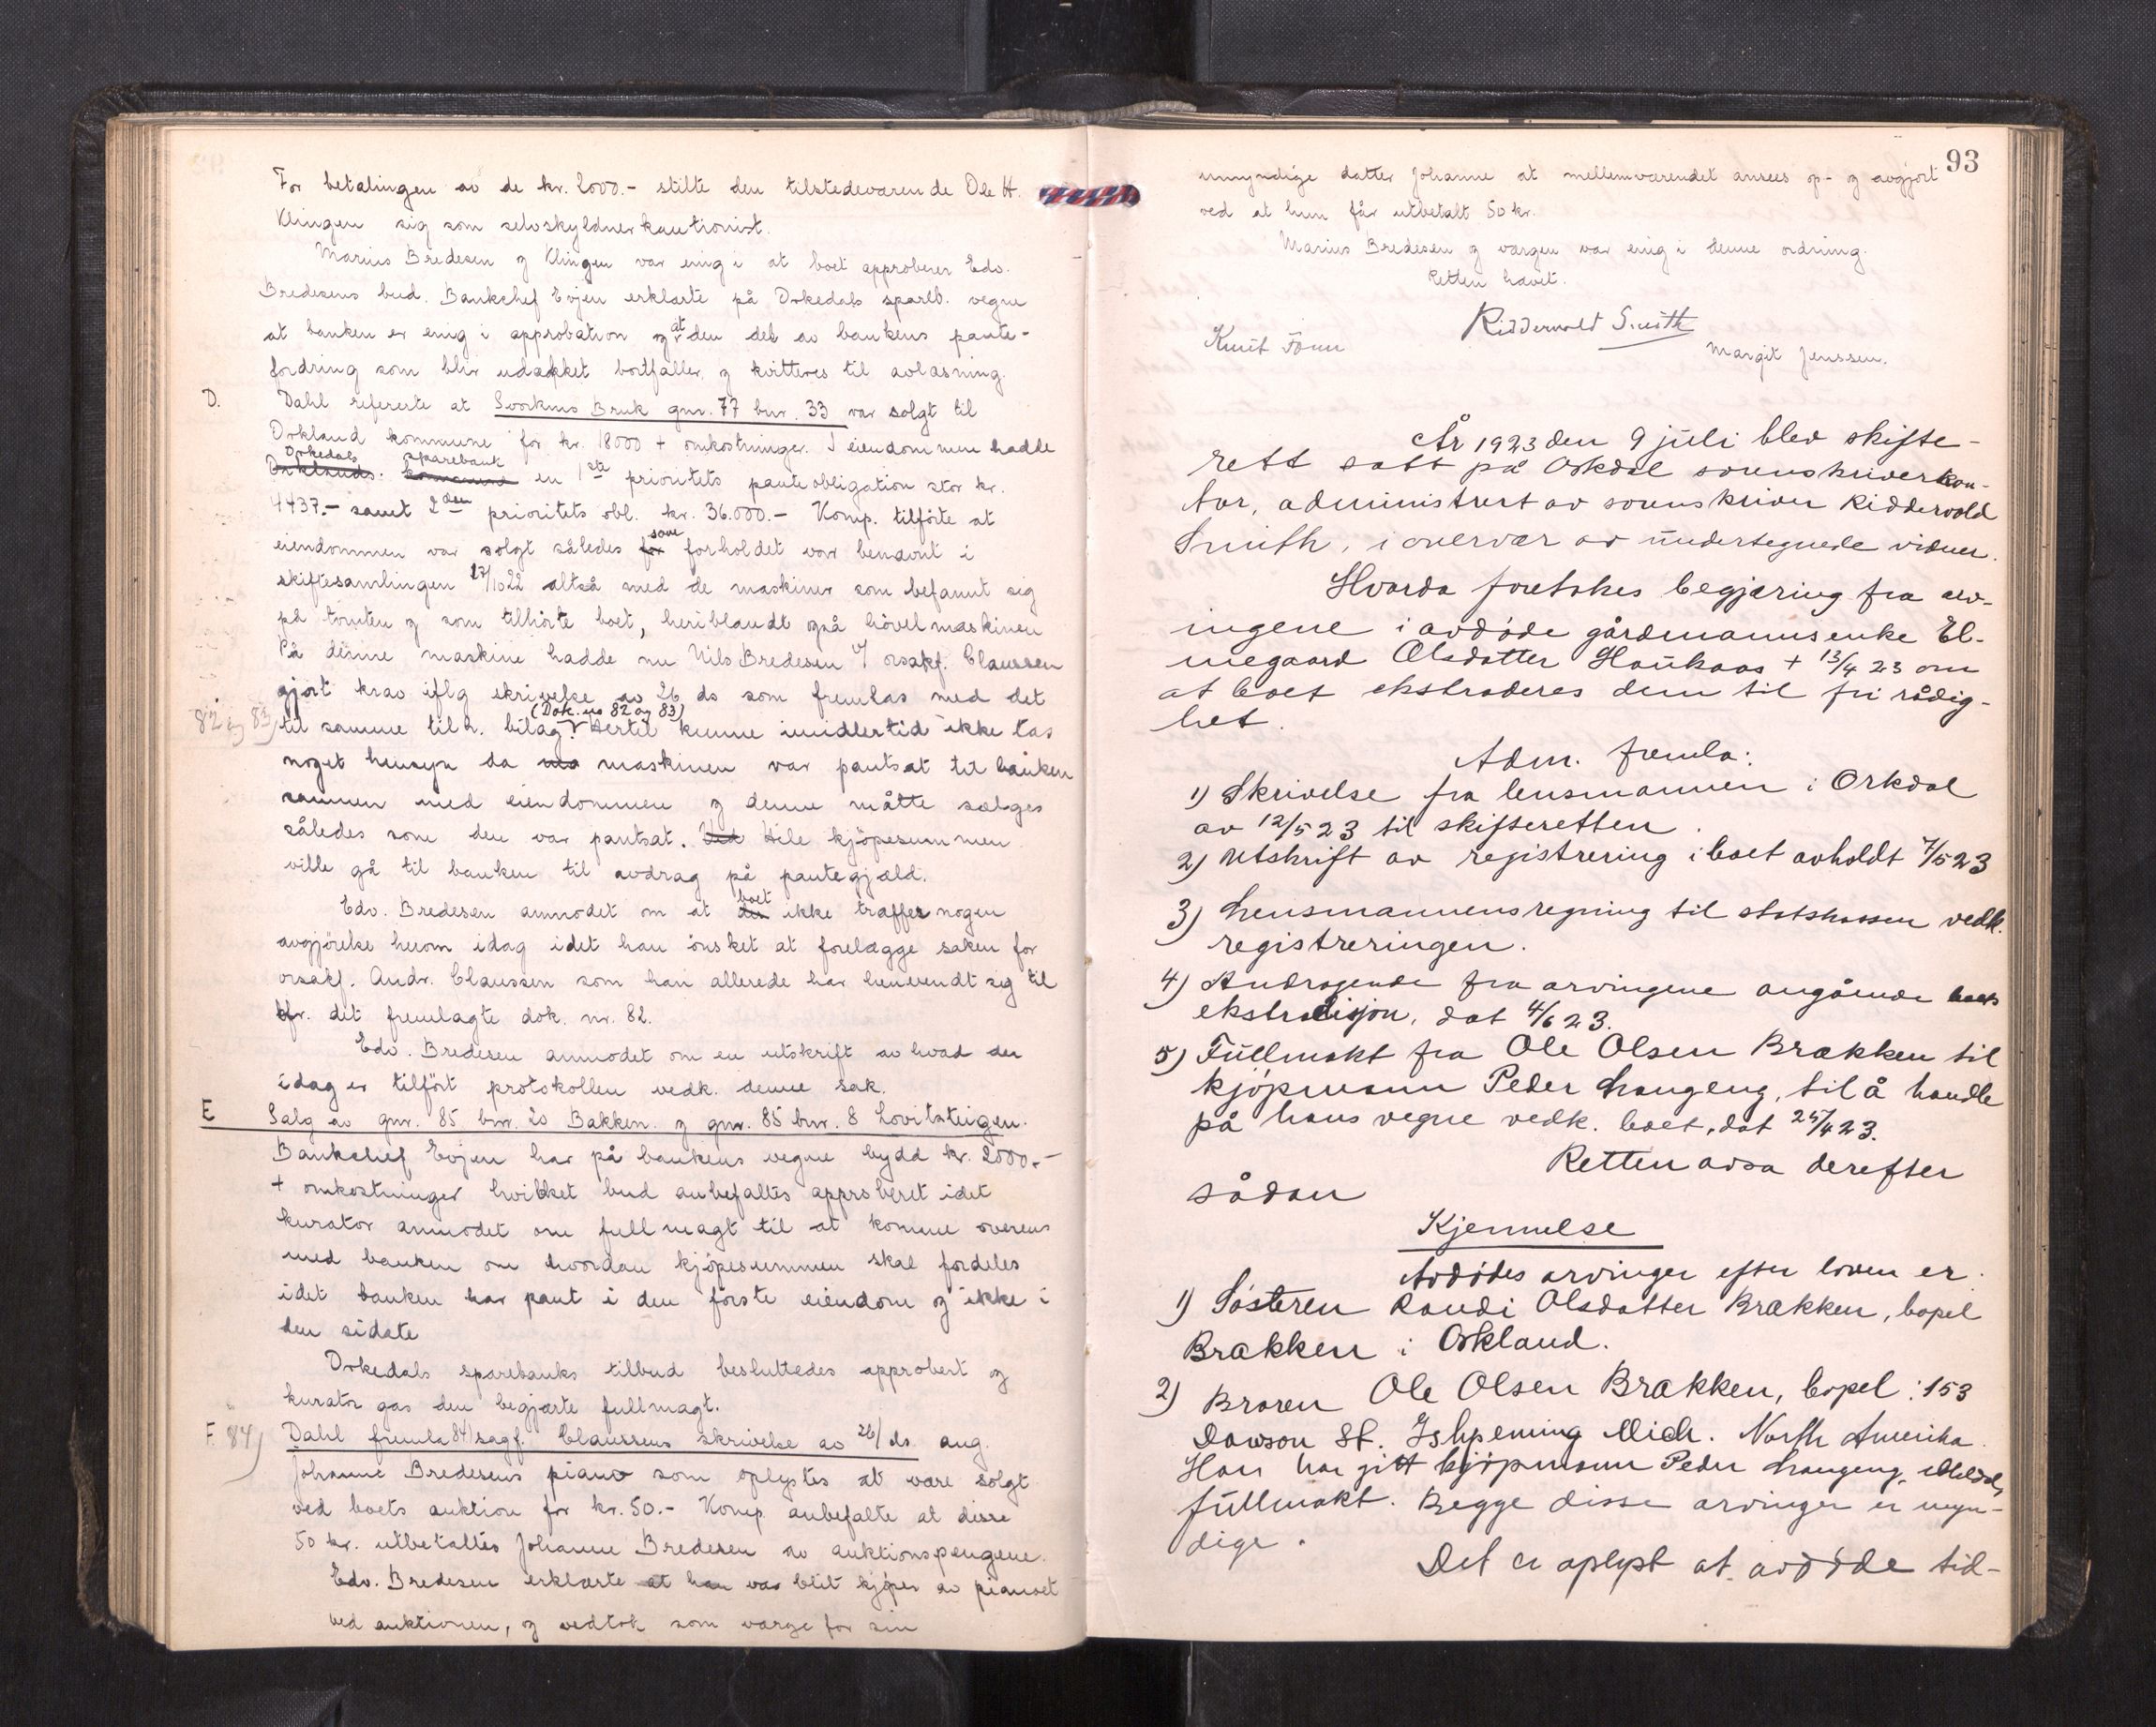 For betalingen av de kr. 2000.- stilte den tilstedeværende Ole H.
Klingen sig som selvskyldnerkautionist.
Marius Bredesen og Klingen var enig i at boet approberer Edv.
Bredesens bud. Bankchef Evjen erklærte på Orkedals sparb. vegne
at banken er enig i approbation og at den del av bankens pante-
fordring som blir udækket bortfaller og kvitteres til avlæsning.
D. Dahl refererte at Svorkmo Bruk gnr. 77 bnr. 33 var solgt til
Orkland kommune for kr. 18000 + omkostninger. I eiendommen hadde
Orkedals sparebank
Orklands kommune en 1ste prioritets panteobligation stor kr.
4437.- samt 2den prioritets obl. kr. 36.000.- Komp. tilførte at
eiendommen var solgt således for som forholdet var benævnt i
skiftesamlingen 27/10 22 altså med de maskiner som befannt sig
på tomten og som tilhørte boet, heriblandt også hövelmaskinen
På denne maskine hadde nu Nils Bredesen v/ orsakf. Claussen
gjort krav iflg skrivelse av 26 ds som fremlas med det
82 og 83) til samme tilh. bilag. (Dok. no 82 og 83) Hertil kunne imidlertid ikke tas
noget hensyn da ma maskinen var pantsat til banken
sammen med eiendommen og denne måtte sælges
således som den var pantsat. Ved Hele kjöpesummen
ville gå til banken til avdrag på pantegjæld.
Edv. Bredesen anmodet om at der boet ikke træffer nogen
avgjörelse herom idag idet han önsket at forelægge saken for
orsakf. Andr. Claussen som han allerede har henvendt sig til
kfr. dit fremlagte dok. nr. 82.
Edv. Bredesen anmodet om en utskrift av hvad der
idag er tilfört protokollen vedk. denne sak.
E Salg av gnr. 85 bnr. 20 Bakken og gnr. 85 bnr. 8 Lovitsteigen.
Bankchef Evjen har på bankens vegne bydd kr. 2000.-
+ omkostninger hvilket bud anbefaltes approberet idet
kurator anmodet om fullmagt til at komme overens
med banken om hvordan kjöpesummen skal fordeles
idet banken har pant i den förste eiendom og ikke i
den sidste
Orkedals sparebanks tilbud besluttedes approbert og
kurator gas den begjærte fullmagt.
F. 84) Dahl fremla 84) sagf. Claussens skrivelse av 26/ ds ang.
Johanne Bredesens piano som oplystes at være solgt
ved boets auktion for kr. 50.- Komp. anbefalte at disse
50 kr. utbetaltes Johanne Bredesen av auktionspengene.
Edv. Bredesen erklærte at han var blit kjöper av pianoet
ved auktionen, og vedtok som værge for sin
93
umyndige datter Johanne at mellemværendet ansees op- og avgjort
ved at hun får utbetalt 50 kr.
Marius Bredesen og værgen var enig i denne ordning.
Retten hævet.
Riddervold Smith
Knut Tönn
Margit Jenssen.
År 1923 den 9 juli blev skifte-
rett satt på Orkdal sorenskriverkon-
tor, administrert av sorenskriver Riddervold
Smith, i overvær av undertegnede vidner.
Hvorda foretokes begjæring fra arv-
ingene i avdöde gårdmannsenke El-
megaard Olsdatter Haukaas + 13/4 23 om
at boet ekstraderes dem til fri rådig-
het.
Adm. fremla:
1) Skrivelse fra lensmannen i Orkdal
av 12/5 23 til skifteretten.
2) Utskrift av registrering i boet avholdt 7/5 23
3) Lensmannens regning til statskassen vedk.
registreringen.
4) Andragende fra arvingene angående boets
ekstradisjon, dat 4/6 23.
5) Fullmakt fra Ole Olsen Brækken til
kjöpmann Peder Langeng, til å handle
på hans vegne vedk. boet, dat 25/4 23.
Retten avsa derefter
sådan
Kjennelse
Avdödes arvinger efter loven er.
1) Söstren Randi Olsdatter Brækken, bopel
Brækken i Orkland.
2) Broren Ole Olsen Brækken, bopel: 153
Dawson St. Ishpeming Mich. North Amerika
Han har gitt kjöpmann Peder Langeng, Meldal,
fullmakt. Begge disse arvinger er myn-
dige.
Det er oplyst at avdöde tid-